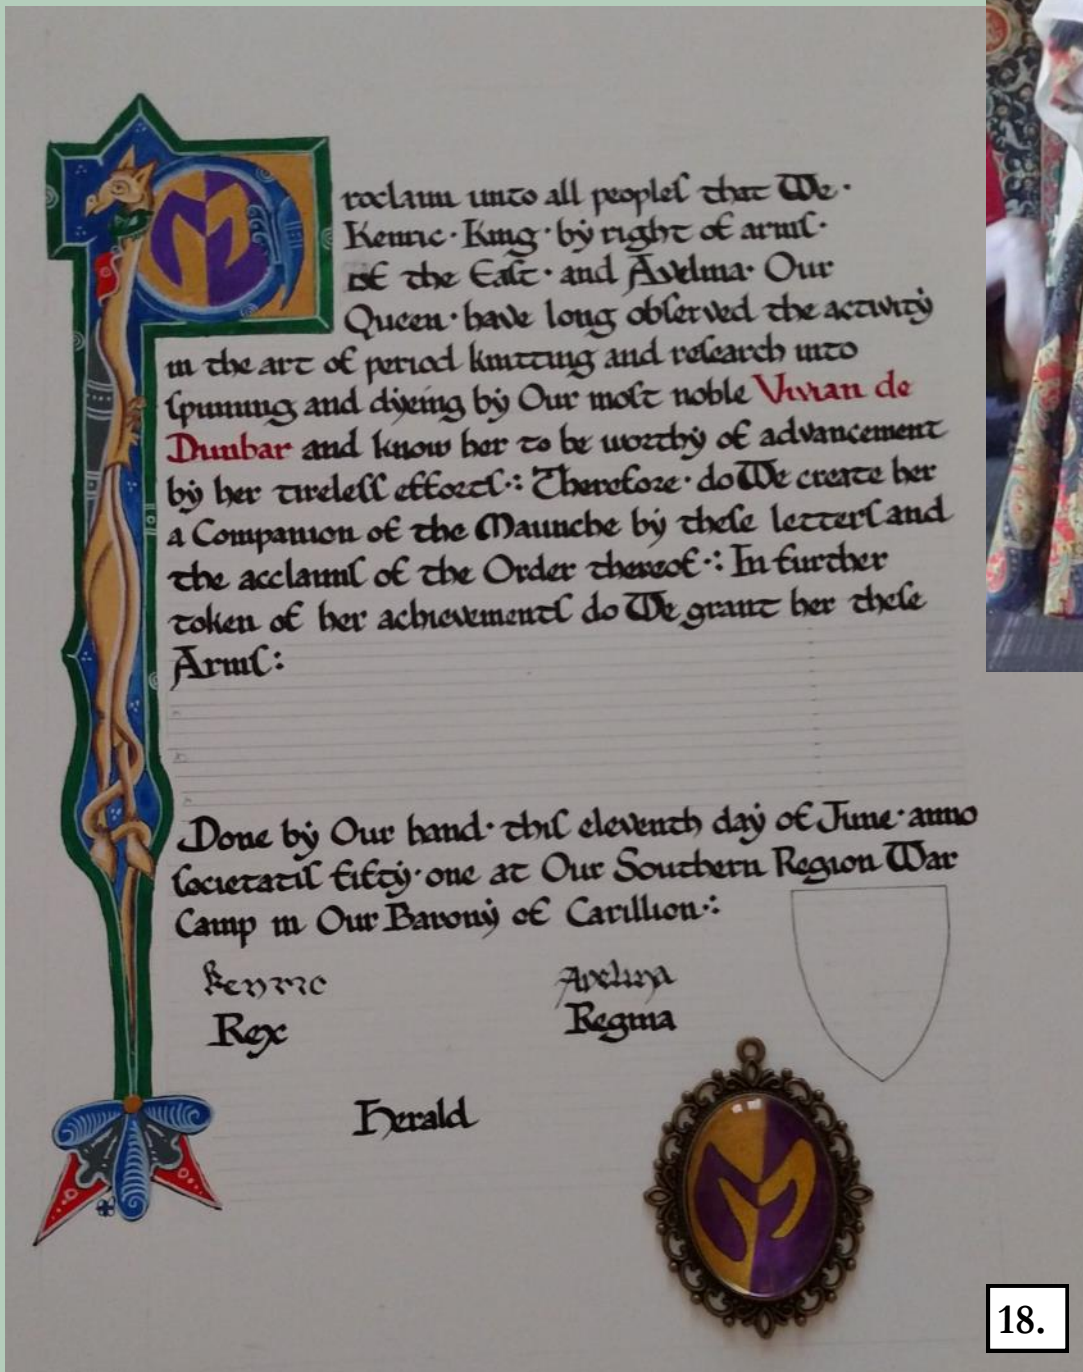 Proclaim unto all peoples that We ·
Kenric · King · by right of arms ·
of the East · and Avelina · Our
Queen · have long observed the activity
in the art of period knitting and research into
spinning and dyeing by Our most noble Vivian de
Dunbar and know her to be worthy of advancement
by her tireless efforts ·: Therefore · do We create her
a Companion of the Maunche by these letters and
the acclaims of the Order thereof ·: In further
token of her achievements do We grant her these
Arms :
Done by Our hand · this eleventh day of June · anno
societatis fifty · one at Our Southern Region War
Camp in Our Barony of Carillion ·:
Kenric Avelina
Rex Regina
Herald
18.